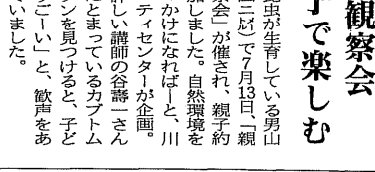 観察会
子で楽しむ
昆虫が生育している男山
で7月13日、「親
会」が催され、親子約
加しました。自然環境を
かけになればーと、川
ティセンターが企画。
しい講師の谷壽一さん
とまっているカブトム
ンを見つけると、子ど
ごーい」と、歓声をあ
いました。